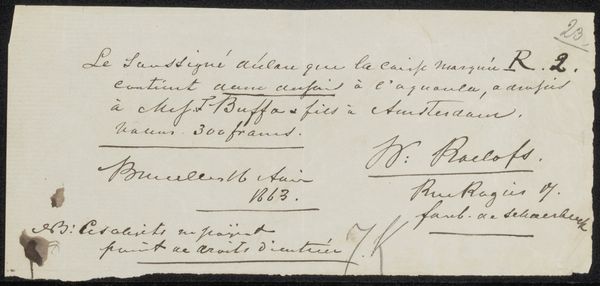 23.
Le soussigné déclare que la caisse marquée R. 2.
contient deux dessins à l'aquarelle, adressés
à Mess. F. Buffa & fils à Amsterdam.
valeur 300 francs.
Bruxelles 16
1863.
W: Roelofs.
Rue Rogier 7.
faub. de Schaerbeek
NB: Ces objets ne payent
point de droits d'entrée